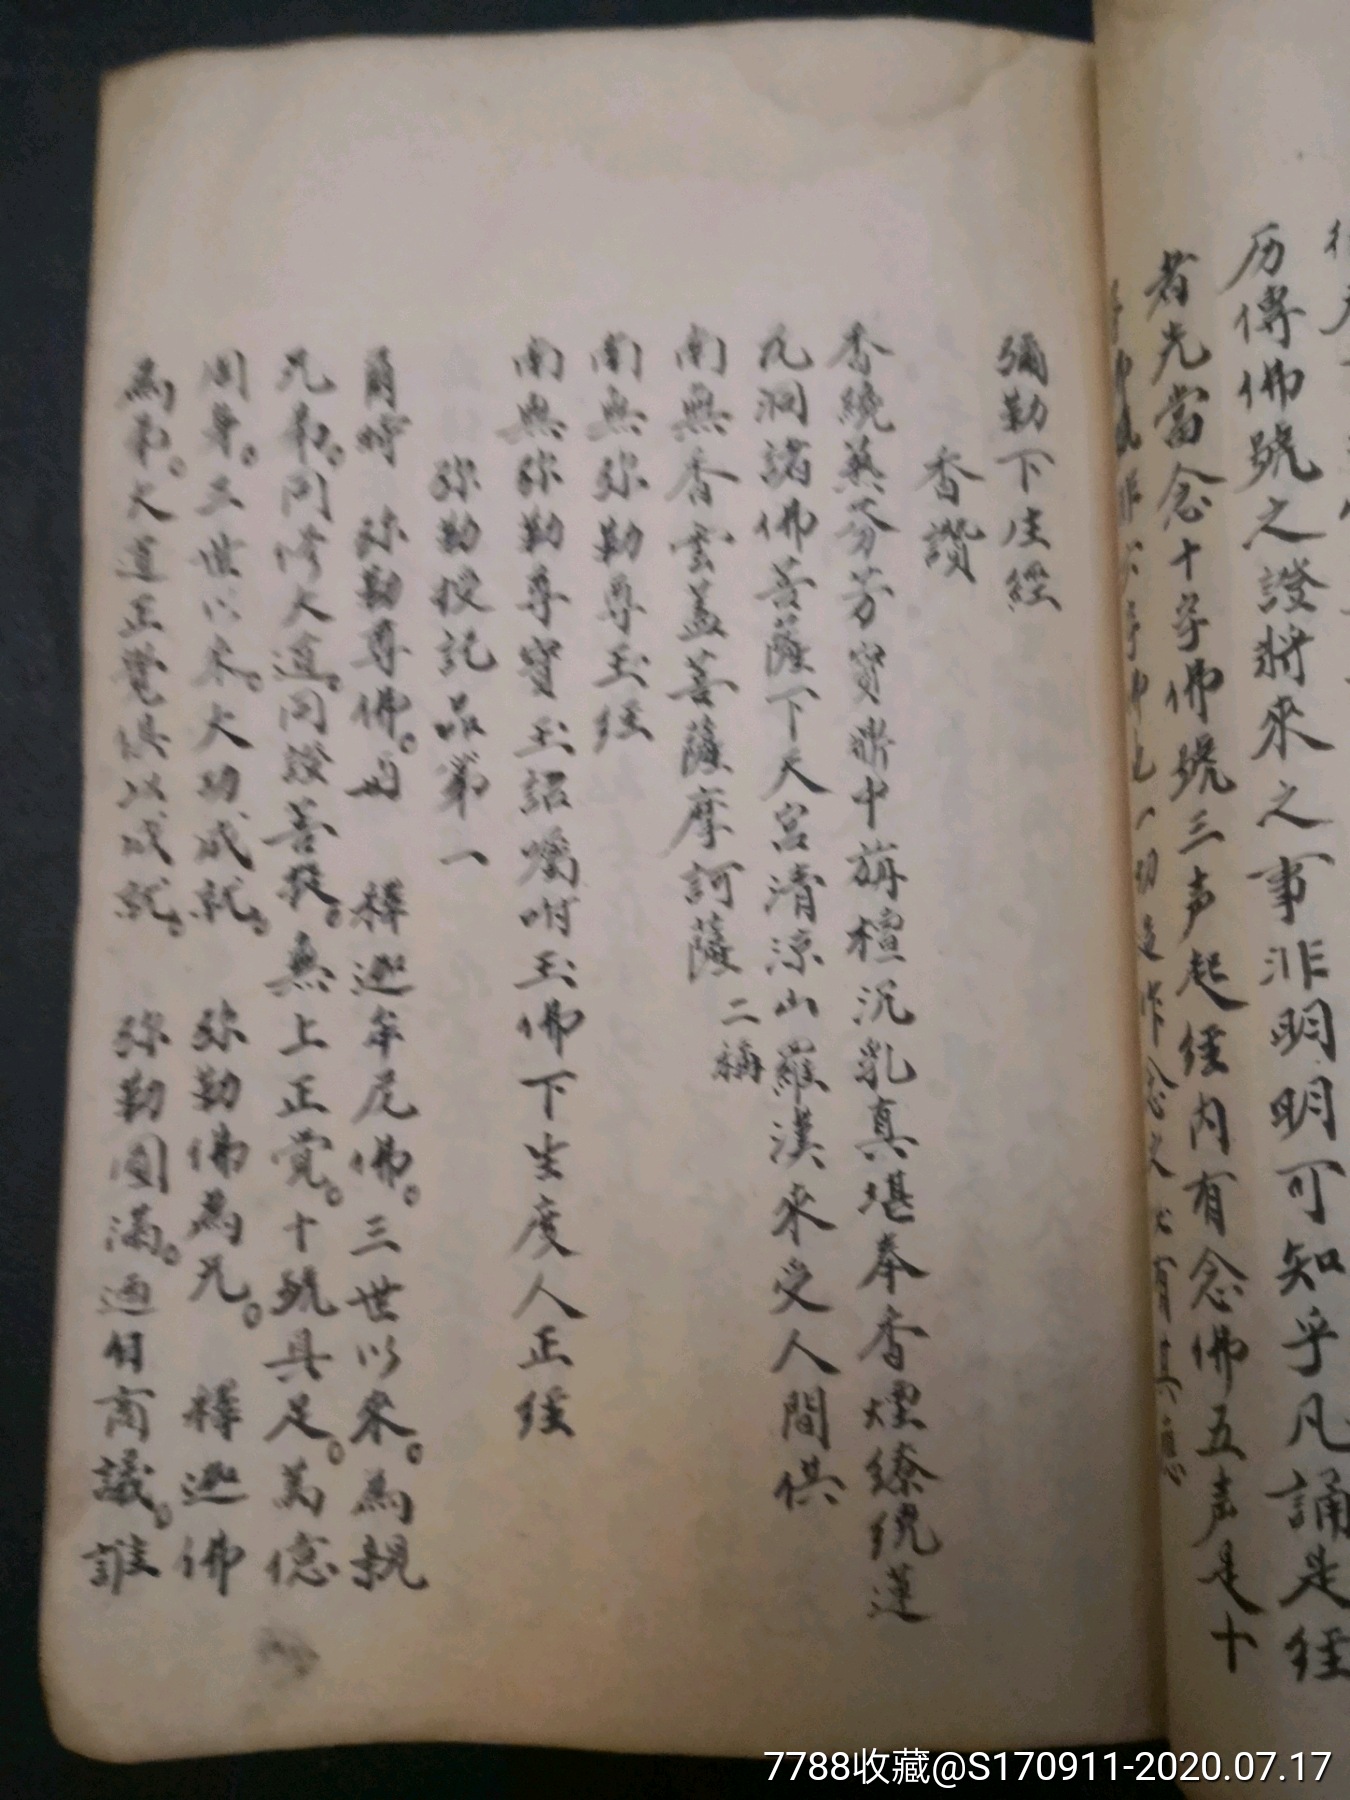 历傳佛號之證將來之事非明明可知乎凡誦是经
者先當念十字佛號三声起经内有念佛五声是十
彌勒下生經
香讚
香繞蒸芬芳寳鼎中旃檀沉乳真堪奉香煙繚绕蓮
九洞諸佛菩薩下天宮清涼山羅漢來受人間供
南無香雲盖菩薩摩訶薩 二稱
南無弥勒尊玉经
南無弥勒尊寳玉詔囑咐玉佛下生度人正经
弥勒授記品第一
爾時 弥勒尊佛。与 释迦牟尼佛。三世以來。為親
兄弟。同修大道。同證菩提。無上正覚。十號具足。萬億
周身。三世以來。大功成就。 弥勒佛為兄。 释迦佛
為弟。大道正覺俱以成就。 弥勒圓滿。商議。誰
7788收藏@S170911-2020.07.17